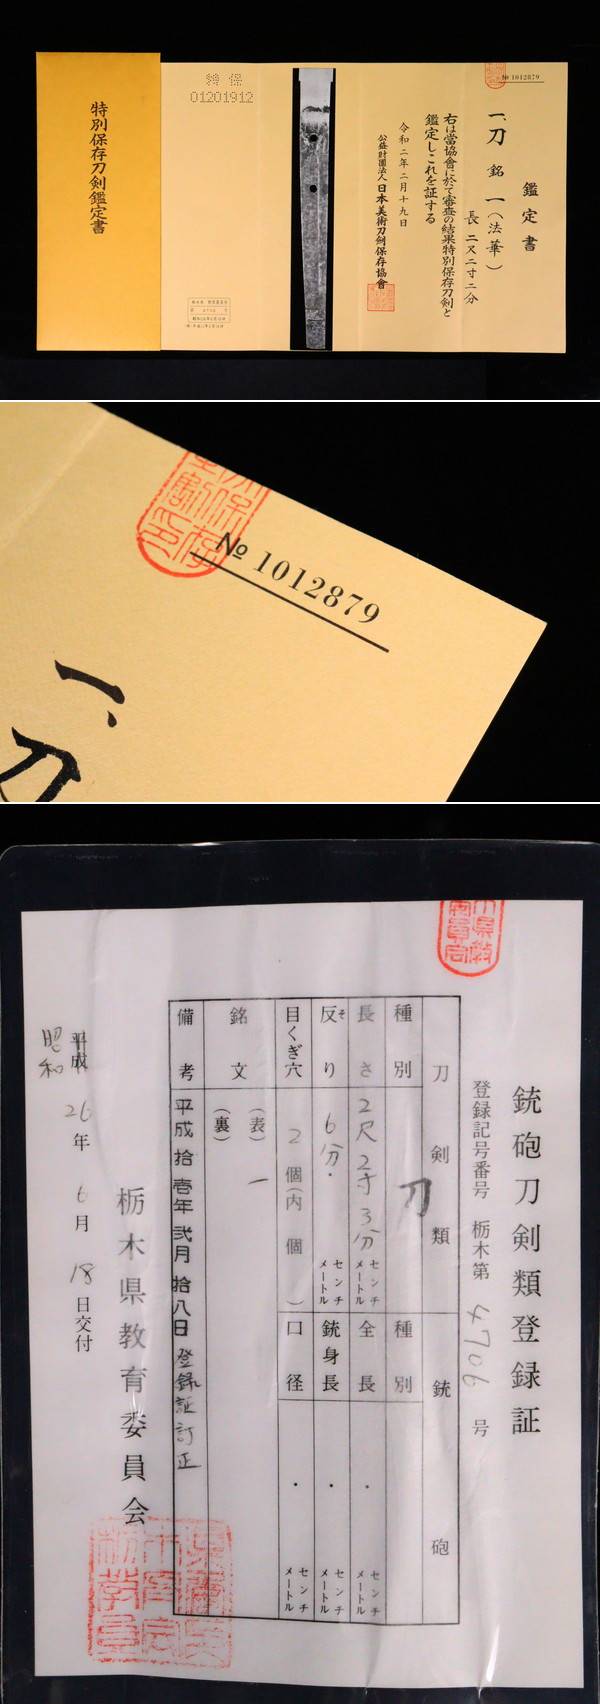 特別保存刀剣鑑定書
特保
01201912
№1012879
鑑定書
一、刀 銘 一(法華)
長 二尺二寸二分
右は當協會に於て審査の結果特別保存刀剣と
鑑定しこれを証する
令和二年二月十九日
公益財團法人日本美術刀剣保存協會
№ 1012879
一、刀
銃砲刀剣類登録証
登録記号番号 栃木第 4706 号
刀剣類
種別 刀
長さ 2尺2寸3分 センチメートル
反り そ 6分. センチメートル
目くぎ穴 2個(内 個)
銘文 (表) 一
(裏)
備考 平成拾壱年弐月拾八日登録証訂正
銃砲
種別
全長 ・ センチメートル
銃身長 ・ センチメートル
口径 ・ センチメートル
平成
昭和 26年 6月 18日交付
栃木県教育委員会